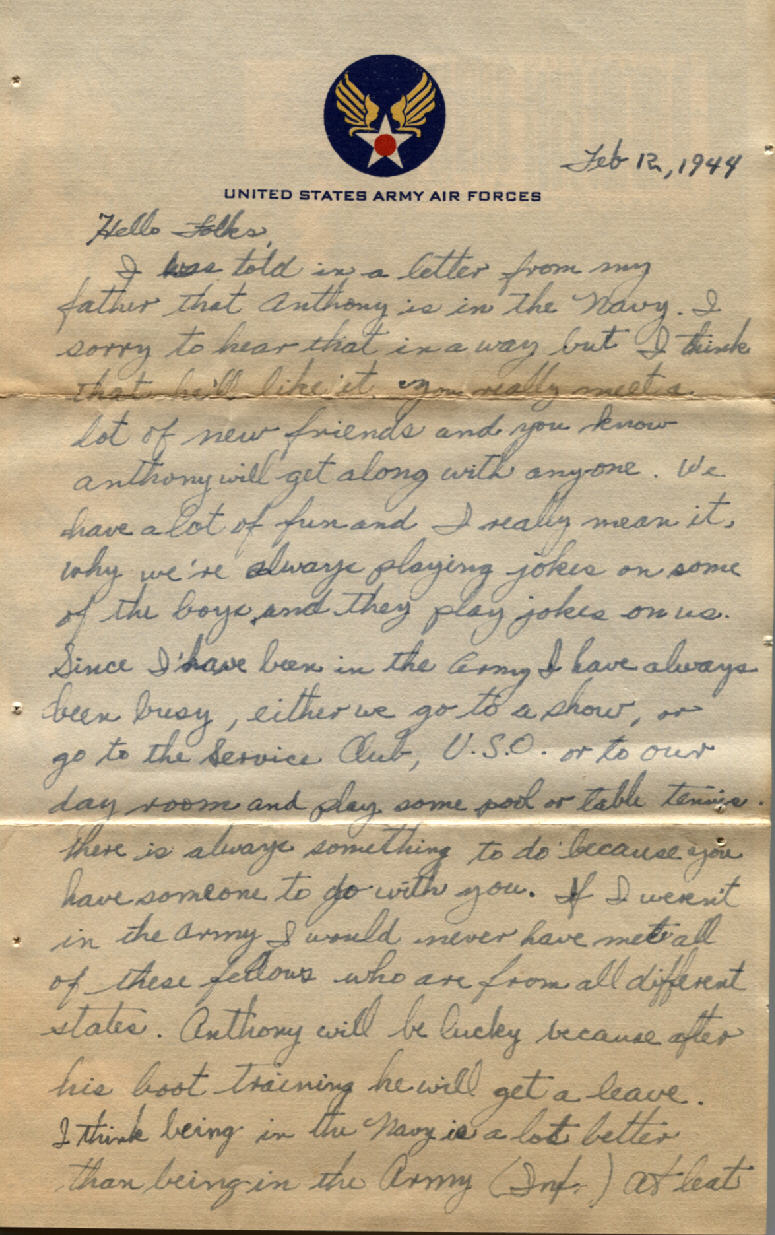 Feb 12, 1944
UNITED STATES ARMY AIR FORCES
Hello Folks,
I was told in a letter from my
father that Anthony is in the Navy. I
sorry to hear that in a way but I think
that he'll like it. You really meet a
lot of new friends and you know
anthony will get along with anyone. We
have a lot of fun and I really mean it,
why we're always playing jokes on some
of the boys, and they play jokes on us.
Since I have been in the Army I have always
been busy, either we go to a show, or
go to the Service Club, U.S.O. or to our
day room and play some pool or table tennis.
there is always something to do because you
have someone to go with you. If I weren't
in the Army I would never have met all
of these fellows who are from all different
states. Anthony will be lucky because after
his boot training he will get a leave.
I think being in the Navy is a lot better
than being in the Army (Inf.) At leat